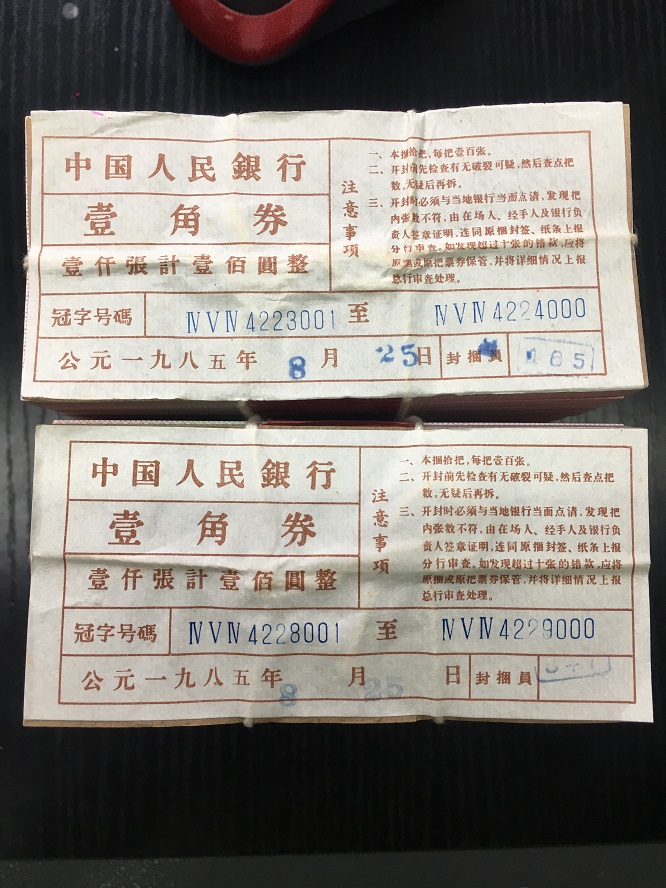 中国人民銀行
壹角券
壹仟張計壹佰圓整
注意事項
一、本捆拾把，每把壹百张。
二、开封前先检查有无破裂可疑，然后查点把
数，无疑后再拆。
三、开封时必须与当地银行当面点清，发现把
内张数不符，由在场人、经手人及银行负
责人签章证明，连同原捆封签、纸条上报
分行审查。如发现超过十张的错款，应将
原捆或原把票券保管，并将详细情况上报
总行审查处理。
冠字号碼 ⅣⅤⅣ4223001 至 ⅣⅤⅣ4224000
公元一九八五年 8 月 25 日 封捆員 185
中国人民銀行
壹角券
壹仟張計壹佰圓整
注意事項
一、本捆拾把，每把壹百张。
二、开封前先检查有无破裂可疑，然后查点把
数，无疑后再拆。
三、开封时必须与当地银行当面点清，发现把
内张数不符，由在场人、经手人及银行负
责人签章证明，连同原捆封签、纸条上报
分行审查。如发现超过十张的错款，应将
原捆或原把票券保管，并将详细情况上报
总行审查处理。
冠字号碼 ⅣⅤⅣ4228001 至 ⅣⅤⅣ4229000
公元一九八五年 8 月 25 日 封捆員